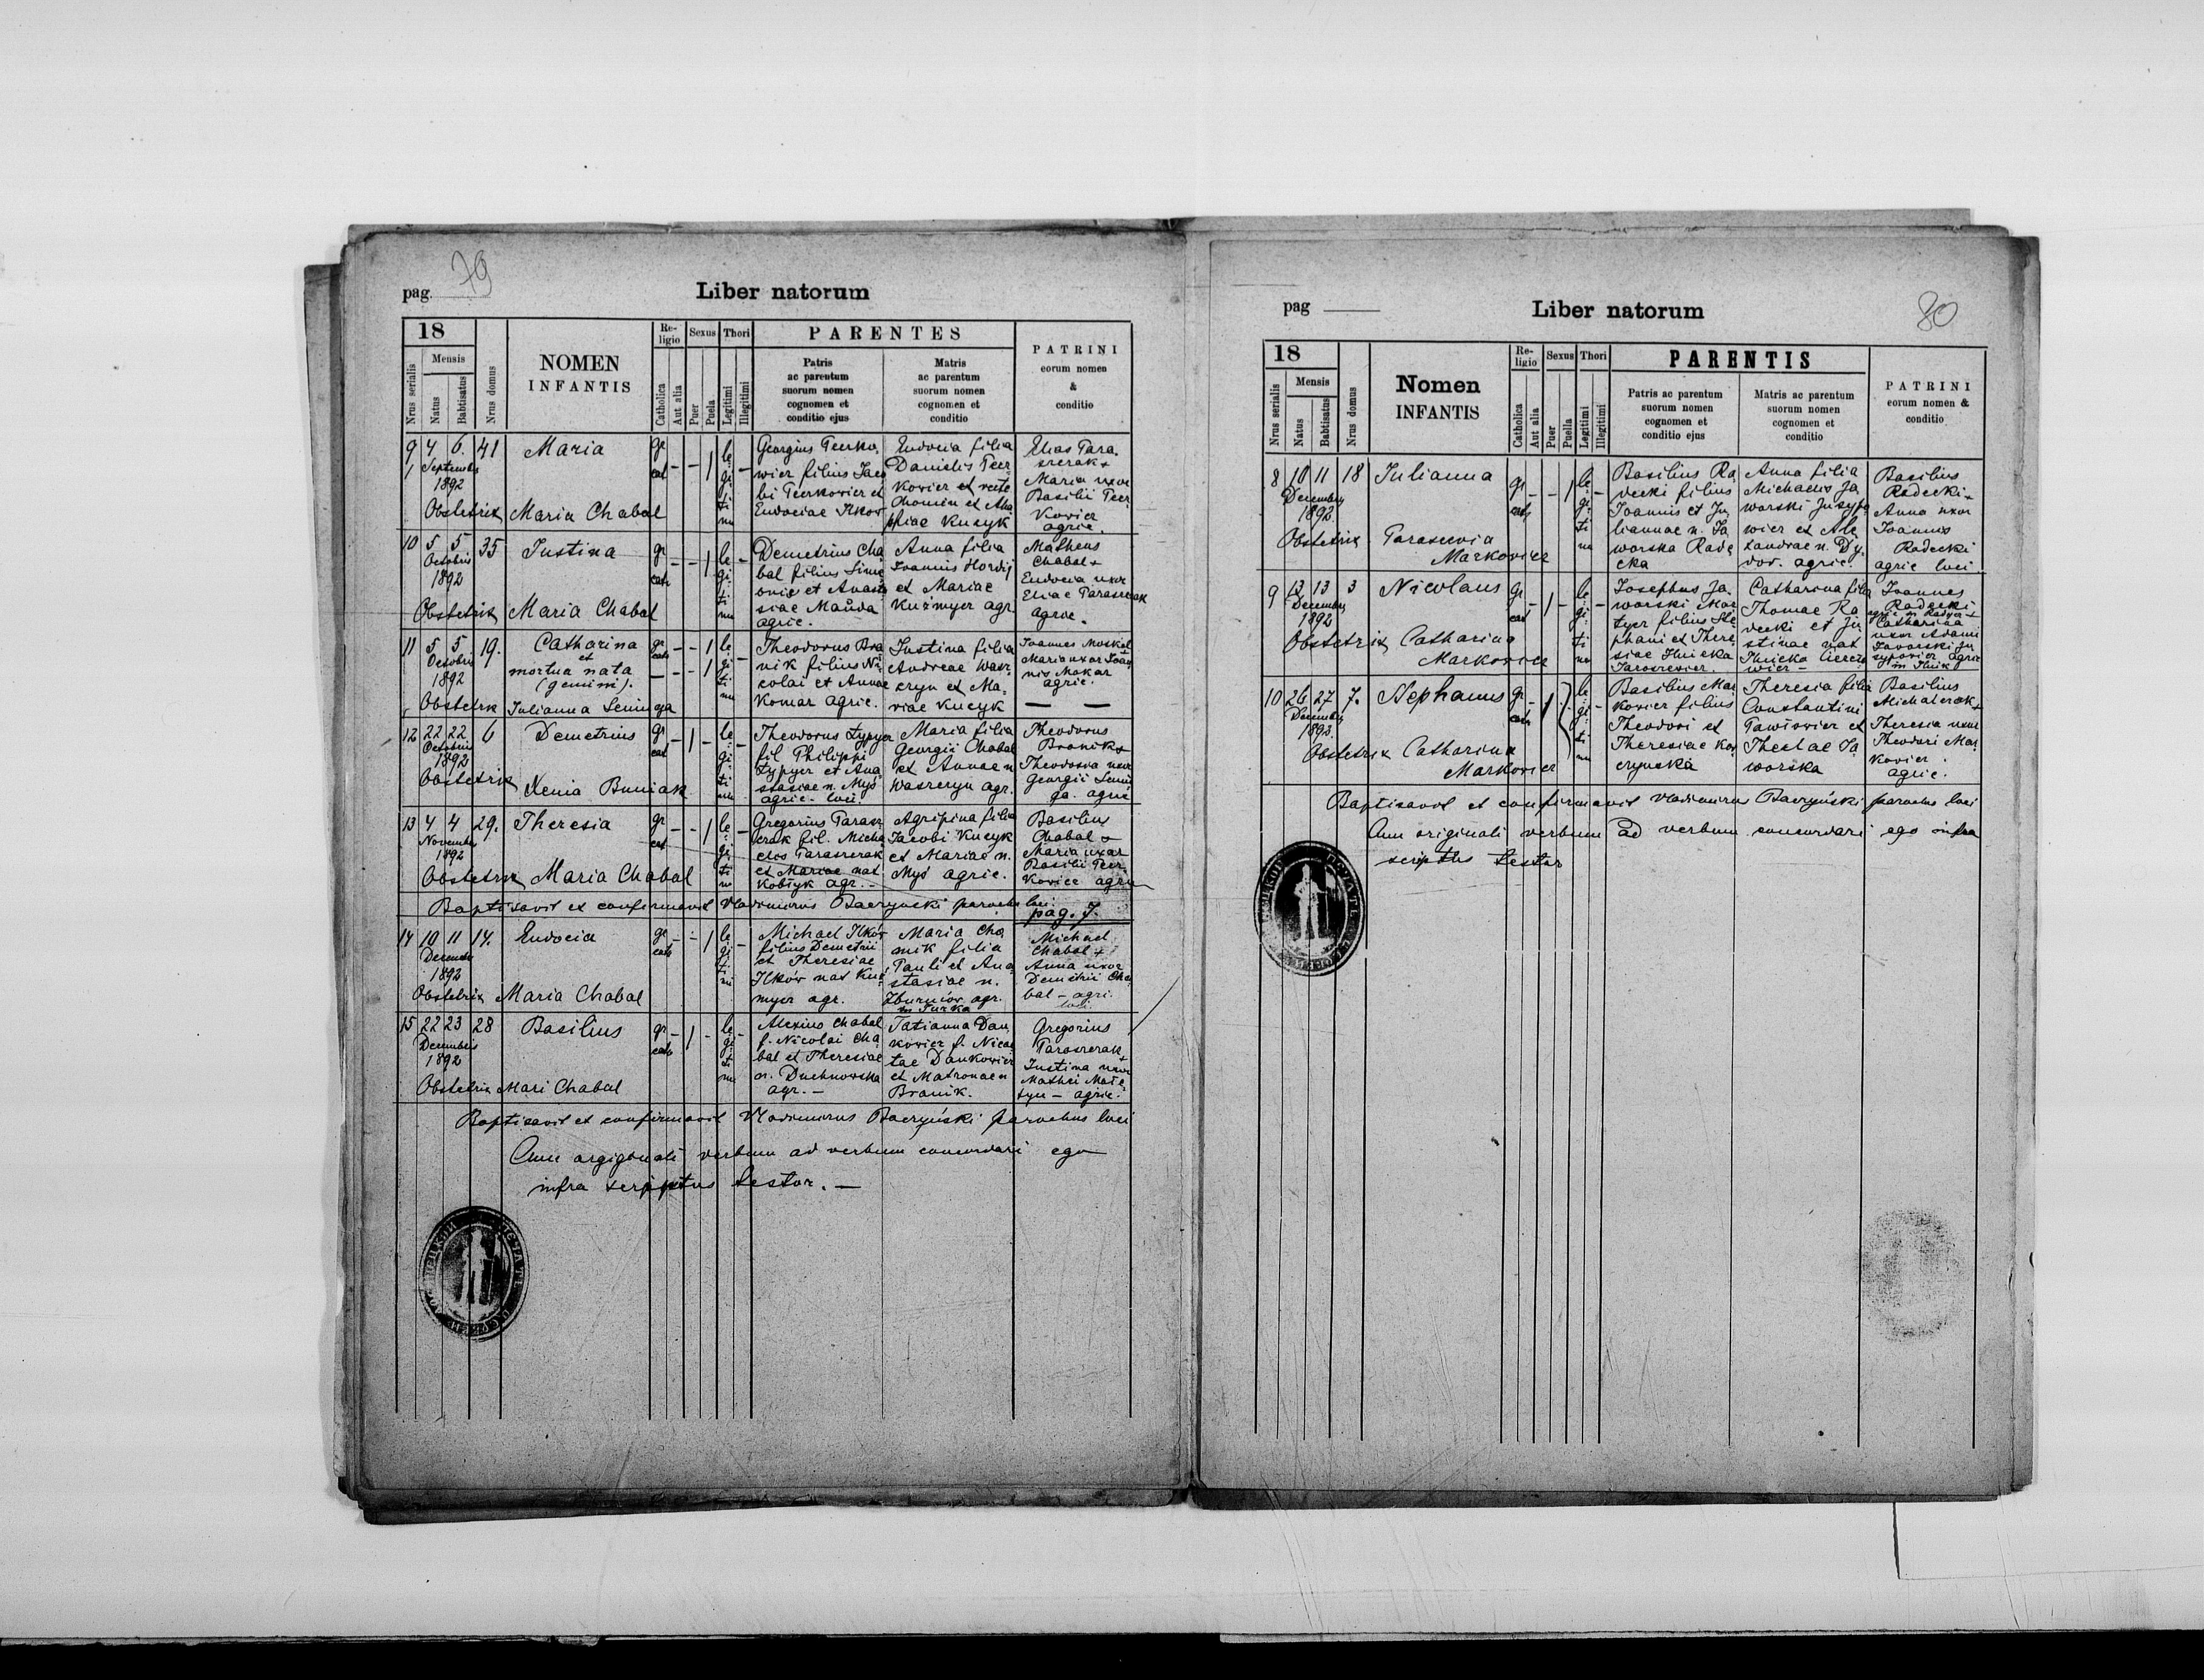 pag. 79
Liber natorum
18
Mensis
Nrus serialis
Natus
Babtisatus
Nrus domus
NOMEN
INFANTIS
Re-
ligio
Catholica
Aut alia
Sexus
Puer
Puela
Thori
Legitimi
Illegitimi
PARENTES
Patris
ac parentum
suorum nomen
cognomen et
conditio ejus
Matris
ac parentum
suorum nomen
cognomen et
conditio
PATRINI
eorum nomen
&
conditio
9 4 6. 41 Maria
Septembr
1892
Obstetrix Maria Chabal
gr
cat
le
gi
ti
mi
Georgius Teerko
wier filius Jaco
bi Teerkowier et
Eudociae Ilkow
Eudocia filia
Danielis Teer
kowier et
Chomin et Aga
phiae Kucyk
Elias Tara
srerak +
Maria uxor
Basilii Teer
kowier
agric.
10 5 5 35 Justina
Octobris
1892
Obstetrix Maria Chabal
gr
cath
le
gi
ti
mi
Demetrius Cha
bal filius Sime
onis et Anasta
siae
agric.
Anna filia
Joannis Hordij
et Mariae
Kuźmyer agr.
Matheus
Chabal +
Eudocia uxor
Eliae Tarasrerak
agric.
11 5 5 19. Catharina
et
mortua nata
(gemini).
Octobris
1892
Obstetrix Julianna Seniuga
gr
cath
le
gi
ti
mi
Theodorus Bra
nik filius Ni
colai et Annae
Komar agric.
Justina filia
Andreae Wasr
eryn et Ma
riae Kucyk
Joannes Moskal
+
Maria uxor Joan
nis Makar
agric.
12 22 22 6 Demetrius
Octobris
1892
Obstetrix Xenia Buniak
gr
cat
le
gi
ti
mi
Theodorus Łypyer
fil Philippi
Łypyer et Ana
stasiae n. Myś
agric. loci
Maria filia
Georgii Chabal
et Annae n
Wasreryn agr.
Theodorus
Branik +
Theodosia uxor
Georgii Seniu
ga. agric
13 4 4 29. Theresia
Novembr
1892
Obstetrix Maria Chabal
gr
cat
le
gi
ti
mi
Gregorius Tarasr
erak fil. Micha
elis Tarasrerak
et Mariae nat
Kobłyk agr. -
Agripina filia
Jacobi Kucyk
et Mariae n.
Myś agric.
Basilius
Chabal +
Maria uxor
Basilii Teer
kowier agric
Baptisavit et confirmavit Vladimirus Baeryński parochus loci
pag. 7.
14 10 11 14. Eudocia
Decembr
1892
Obstetrix Maria Chabal
gr
cath
le
gi
ti
mi
Michael Ilków
filius Demetrii
et Theresiae
Ilków nat Kuź
myer agr.
Maria Cha
nik filia
Pauli et Ana
stasiae n.
agr.
in Turka
Michael
Chabal +
Anna uxor
Demetrii Cha
bal - agri.
loci
15 22 23 28 Basilius
Decembris
1892
Obstetrix Mari Chabal
gr
cath
le
gi
ti
mi
Alexius Chabal
f. Nicolai Cha
bal et Theresiae
n. Duchnowska
agr. -
Tatianna Dan
kowier f. Nice
tae Dankowier
et Matronae n
Branik.
Gregorius
Tarasrerak
+
Justina uxor
Mathei
tyn - agric.
Baptisavit et confirmavit Vladimirus Baeryński parochus loci
Cum orgiginali verbum ad verbum concordari ego
infra scripptus testor. -
pag
Liber natorum
80
18
Mensis
Nrus serialis
Natus
Babtisatus
Nrus domus
Nomen
INFANTIS
Re-
ligio
Catholica
Aut alia
Sexus
Puer
Puella
Thori
Legitimi
Illegitimi
PARENTIS
Patris ac parentum
suorum nomen
cognomen et
conditio ejus
Matris ac parentum
suorum nomen
cognomen et
conditio
PATRINI
eorum nomen &
conditio
8 10 11 18 Julianna
Decembr
1892
Obstetrix Parascevia
Markowier
gr
cath
le
gi
ti
mi
Basilius Ra
decki filius
Joannis et Ju
liannae n. Ja
worska Rade
cka
Anna filia
Michaelis Ja
worski Jusypo
wier et Ale
xandrae n. Dy
dow. agric.
Basilius
Radecki +
Anna uxor
Joannis
Radecki
agric loci
9 13 13 3 Nicolaus
Decembr
1892
Obstetrix Catharina
Markowier
gr
cat
le
gi
ti
mi
Josephus Ja
worski Mar
tyer filius Ste
phani et There
siae Ilnicka
Jarosrewier.
Catharina filia
Thomae Ra
decki et Ju
stinae nat
Ilnicka
wier -
Joannes
Radecki
Catharina
uxor Adami
Javorski Ju
sypowier agric
in Ilnik
10 26 27 7. Stephanus
Decembr
1892.
Obstetrix Catharina
Markowier
gr
cath
le
gi
ti
mi
Basilius Mar
kowier filius
Theodori et
Theresiae Ko
erynska
Theresia filia
Constantini
Pawisvier et
Theclae Ja
worska
Basilius
Michalerak +
Theresia uxor
Theodori Mar
kovier
agric.
Baptisavit et confirmavit Vladimirus Baeryński parochus loci
Cum originali verbum ad verbum concordari ego infra
scriptus testor